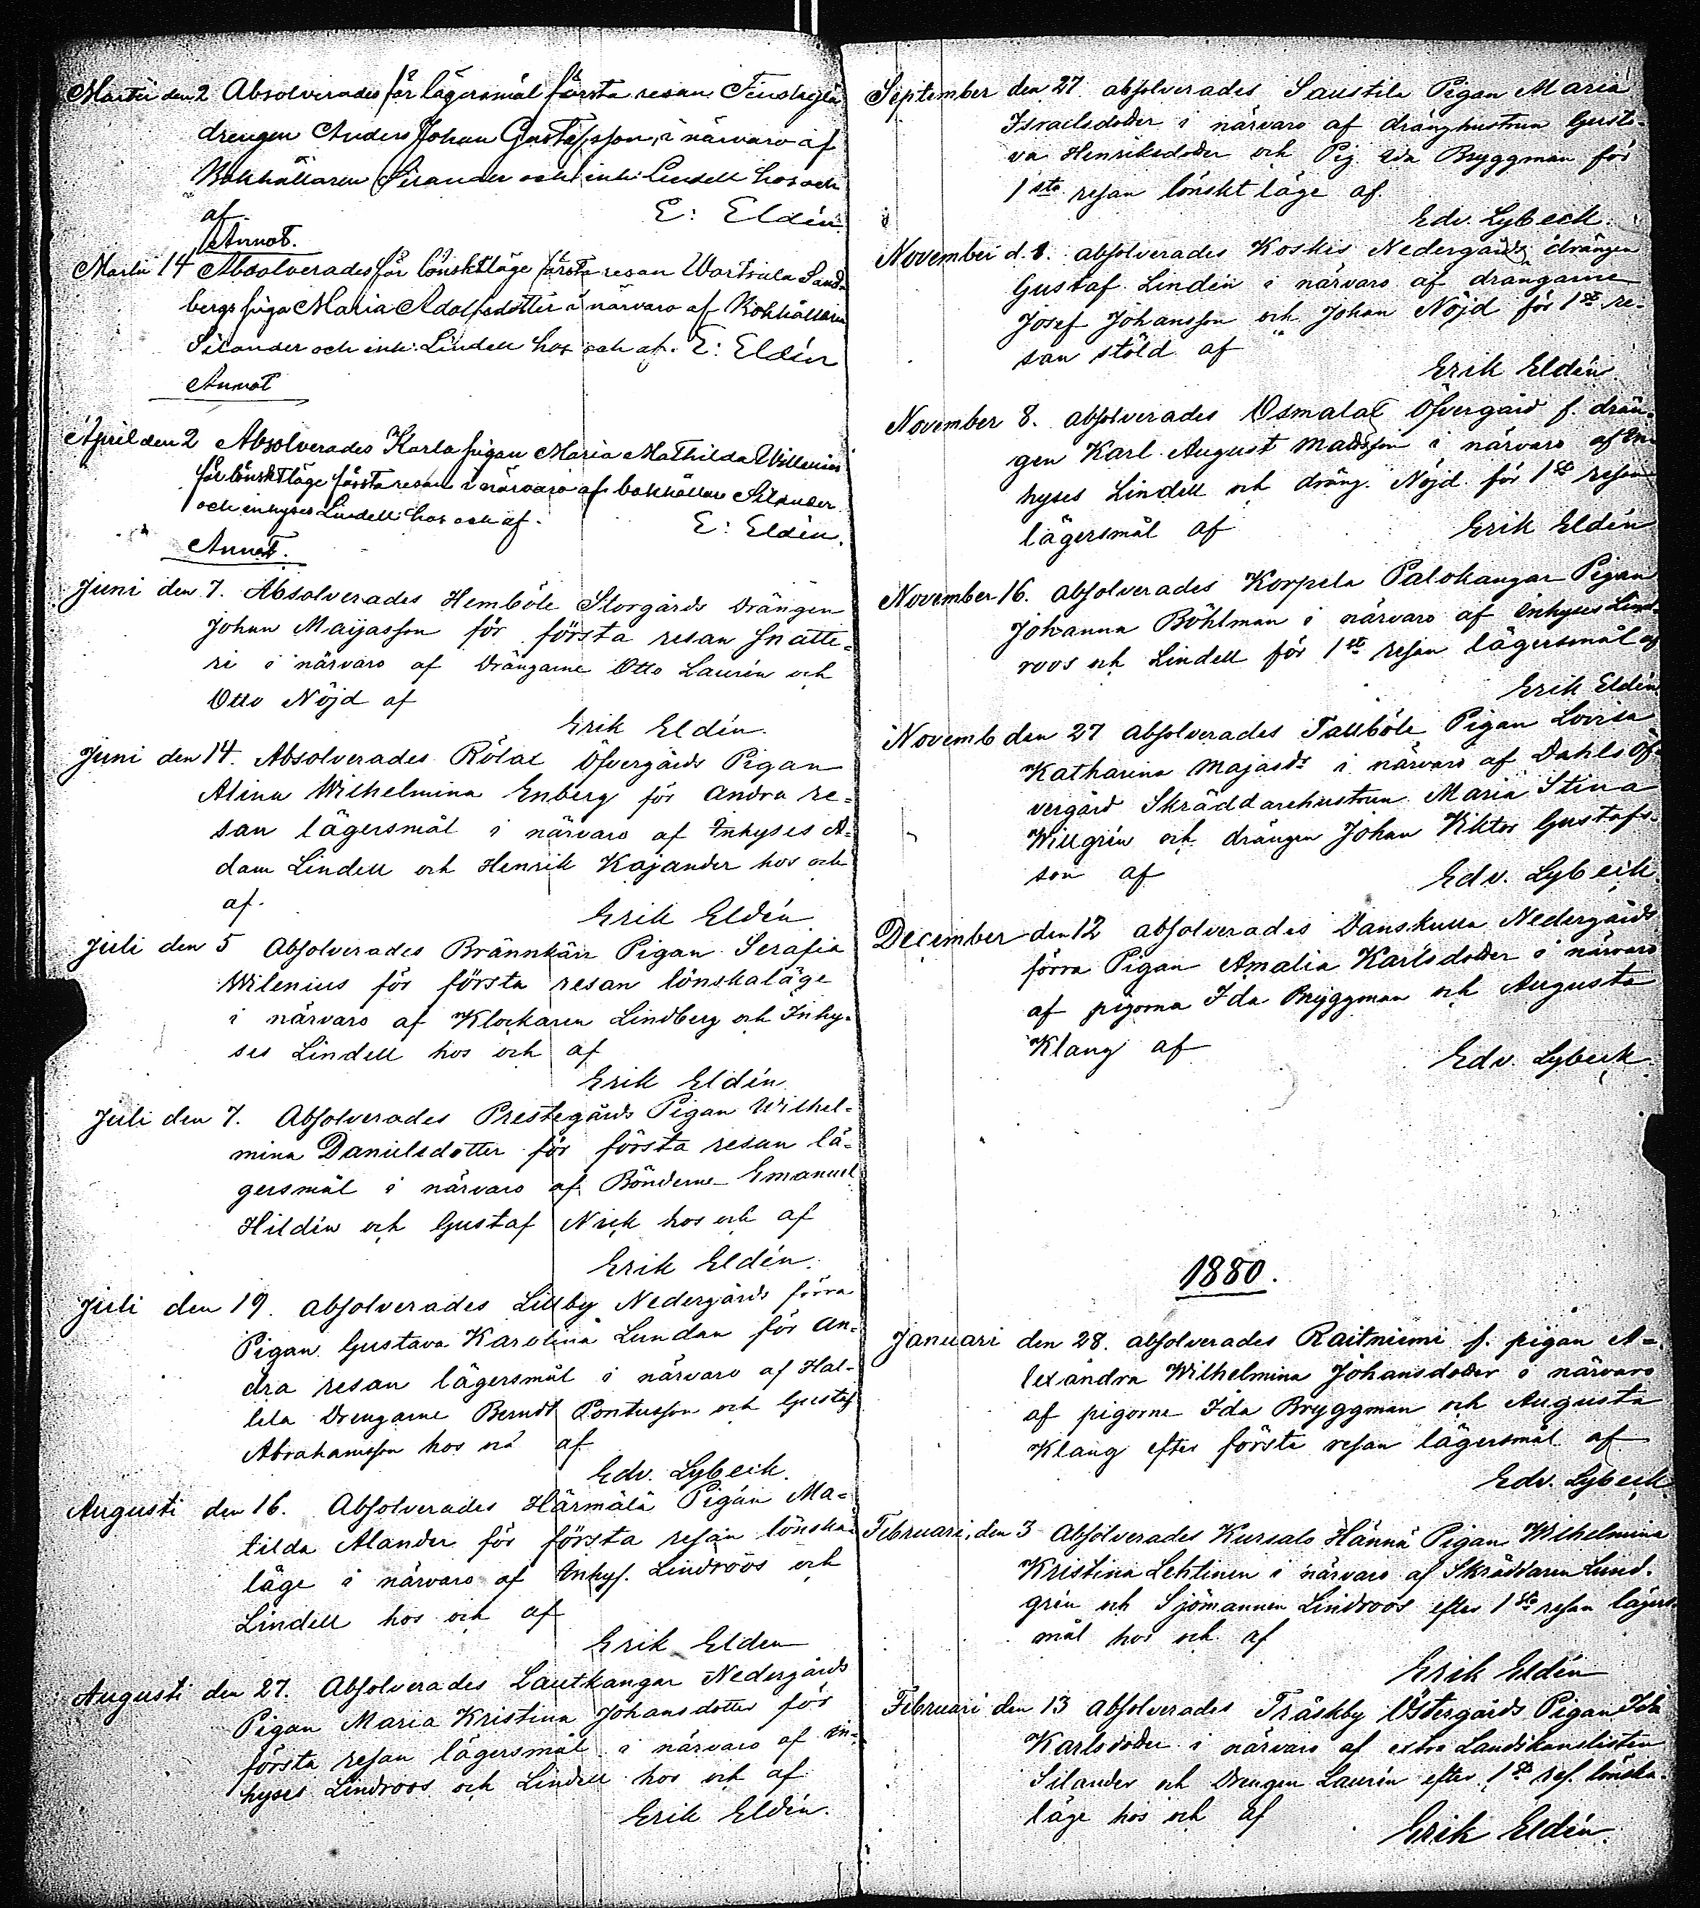 Martii den 2 Absolverades för lägersmål första resan Finskeglä
drengen Anders Johan Gustafsson, i närvaro af
Bokhållaren Silander och inh: Lindell hos och
af. E: Eldén.
Annot.
Martii 14 Absolverades för lönsktläge första resan Wartsala Sand-
bergs piga Maria Adolfsdotter i närvaro af Bokhållaren
Silander och inh: Lindell hos och af. E: Eldén
Annot
April den 2 Absolverades Karla pigan Maria Mathilda Willenius
för lönsktläge första resan i närvaro af bokhållare Silander
och inhyses Lindell hos och af. E: Eldén.
Annot.
Juni den 7. Absolverades Hemböle Storgårds Drängen
Johan Maijasson för första resan snatte-
ri i närvaro af Drängarne Otto Laurén och
Otto Nöjd af
Erik Eldén.
Juni den 14. Absolverades Rölax Öfvergårds Pigan
Alina Wilhelmina Enberg för andra re-
san lägersmål i närvaro af Inhyses A-
dam Lindell och Henrik Kajander hos och
af.
Erik Eldén
Juli den 5 Absolverades Brännkärr Pigan Serafia
Wilenius för första resan lönskaläge
i närvaro af Klockaren Lindberg och Inhy-
ses Lindell hos och af
Erik Eldén.
Juli den 7. Absolverades Prestegårds Pigan Wilhel-
mina Danielsdotter för första resan lä-
gersmål i närvaro af Bönderne Emanuel
Hildén och Gustaf Nick hos och af
Erik Eldén.
Juli den 19. Absolverades Lillby Nedergårds förra
Pigan Gustava Karolina Lundan för an-
dra resan lägersmål i närvaro af Hal-
lela Drengarne Berndt Pontusson och Gustaf
Abrahamsson hos och af
Edv. Lybeck.
Augusti den 16. Absolverades Härmälä Pigan Ma-
tilda Alander för första resan lönska-
läge i närvaro af Inhys. Lindroos och
Lindell hos och af
Erik Elden
Augusti den 27. Absolverades Lautkangar Nedergårds
Pigan Maria Kristina Johansdotter för
första resan lägersmål i närvaro af in-
hyses Lindroos och Lindell hos och af
Erik Eldén.
September den 27. absolverades Saustila Pigan Maria
Israelsdotter i närvaro af dränghustrun Gusta-
va Henriksdotter och Pig. Ida Bryggman för
1sta resan lönskt läge af.
Edv. Lybeck.
November d. 1. absolverades Koskis Nedergårds drängen
Gustaf Lindén i närvaro af drängarne
Josef Johansson och Johan Nöjd för 1sta re-
san stöld af
Erik Eldén
November 8. absolverades Osmalax Öfvergård f. drän-
gen Karl August Mattsson i närvaro af In-
hyses Lindell och dräng. Nöjd för 1sta resan
lägersmål af Erik Eldén
November 16. absolverades Korpela Palokangar Pigan
Johanna Böhlman i närvaro af inhyses Lind-
roos och Lindell för 1sta resan lägersmål af
Erik Eldén
Novemb den 27 absolverades Tallböle Pigan Lovisa
Katharina Majasdr i närvaro af Dahls Öf-
vergård Skräddarehustrun Maria Stina
Willgrén och drängen Johan Viktor Gustafs-
son af Edv. Lybeck.
December den 12 absolverades Danskulla Nedergårds
förra Pigan Amalia Karlsdotter i närvaro
af pigorna Ida Bryggman och Augusta
Klang af
Edv. Lybeck.
1880.
Januari den 28. absolverades Raitniemi f. pigan A-
lexandra Wilhelmina Johansdotter i närvaro
af pigorne Ida Bryggman och Augusta
Klang efter förste resan lägersmål af
Edv. Lybeck.
Februari den 3 Absolverades Kursalo Hännä Pigan Wilhelmina
Kristina Lehtinen i närvaro af Skräddaren Lund-
grén och Sjömannen Lindroos efter 1sta resan lägers-
mål hos och af
Erik Eldén
Februari den 13 absolverades Träskby Östergårds Pigan Ida
Karlsdotter i närvaro af extra Landskanslisten
Silander och Drengen Laurén efter 1sta res. lönska-
läge hos och af
Erik Eldén.